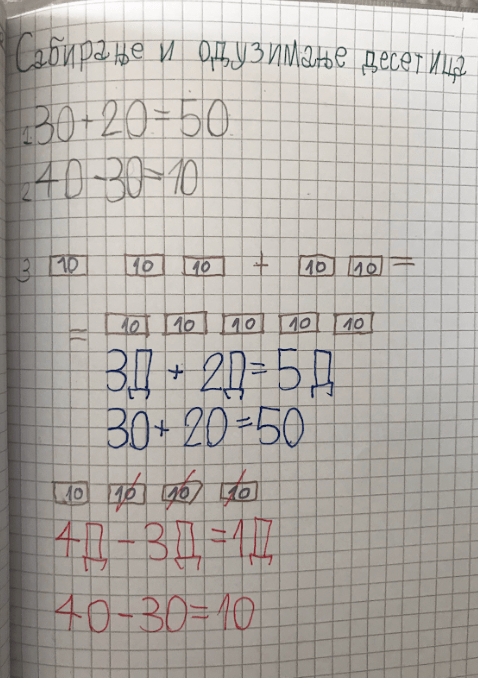 Сабирање и одузимање десетица
1 30+20=50
2 40-30=10
3 10 10 10 + 10 10 =
= 10 10 10 10 10
3Д + 2Д = 5Д
30+20=50
10 10 10 10
4Д - 3Д = 1Д
40-30=10